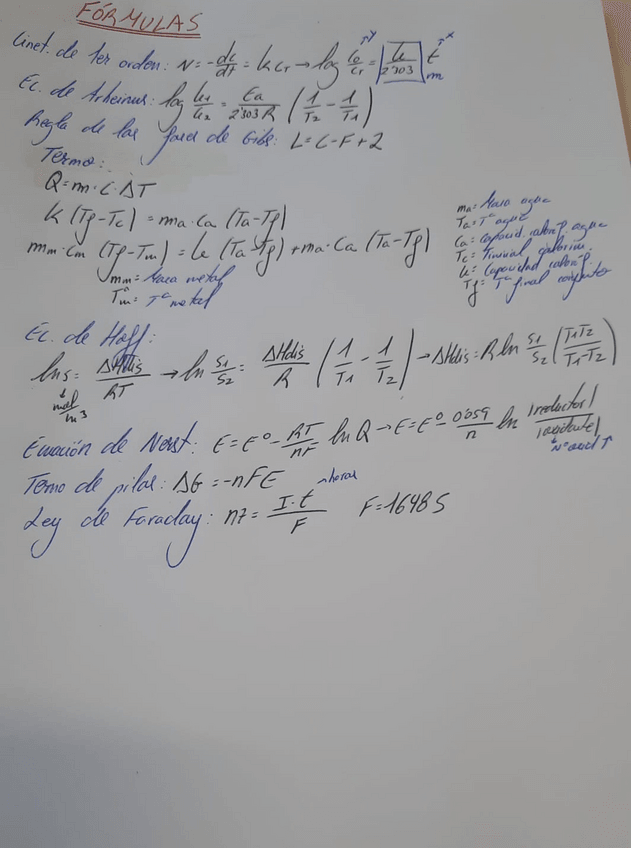 FÓRMULAS
Cinet. de 1er orden: v = -dc/dt = k cr → log co/cr = k/2'303 t
↑y ↑x
m
Ec. de Arheinus: log k1/k2 = Ea/2'303 R (1/T2 - 1/T1)
Regla de las fases de Gibs: L = C - F + 2
Termo:
Q = m · C · ΔT
k (Tf - Tc) = ma · Ca (Ta - Tf)
mm · Cm (Tf - Tm) = k (Ta - Tf) + ma · Ca (Ta - Tf)
mm = Masa metal
Tm = Tª metal
ma = Masa agua
Ta = Tª agua
Ca = Capacid. caloríf. agua
Tc = T inicial calorím.
k = Capacidad caloríf.
Tf = Tª final conjunto
Ec. de Hoff:
ln s = ΔHdis/RT → ln S1/S2 = ΔHdis/R (1/T1 - 1/T2) → ΔHdis = R ln S1/S2 (T1T2/T1-T2)
↓
mol/m3
Ecuación de Nerst: E = Eº - RT/nF ln Q → E = Eº - 0'059/n ln |reductor|/|oxidante|
↓ Nº oxid ↑
Termo de pilas: ΔG = -nFE
→ horas
Ley de Faraday: n7 = I · t/F F = 1648 S